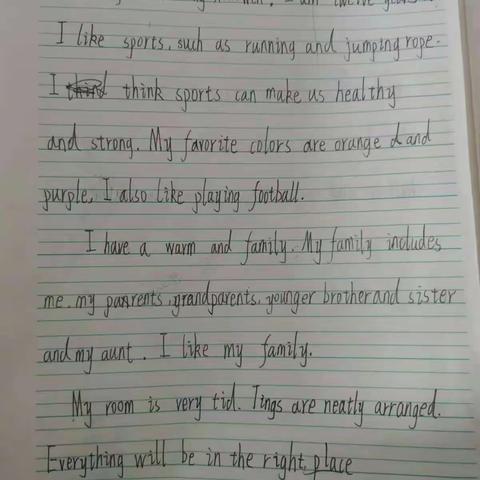 I am twelve years
I like sports, such as running and jumping rope.
I think sports can make us healthy
and strong. My favorite colors are orange and
purple. I also like playing football.
I have a warm and family. My family includes
me, my parents, grandparents, younger brother and sister
and my aunt. I like my family.
My room is very tid. Tings are neatly arranged.
Everything will be in the right place